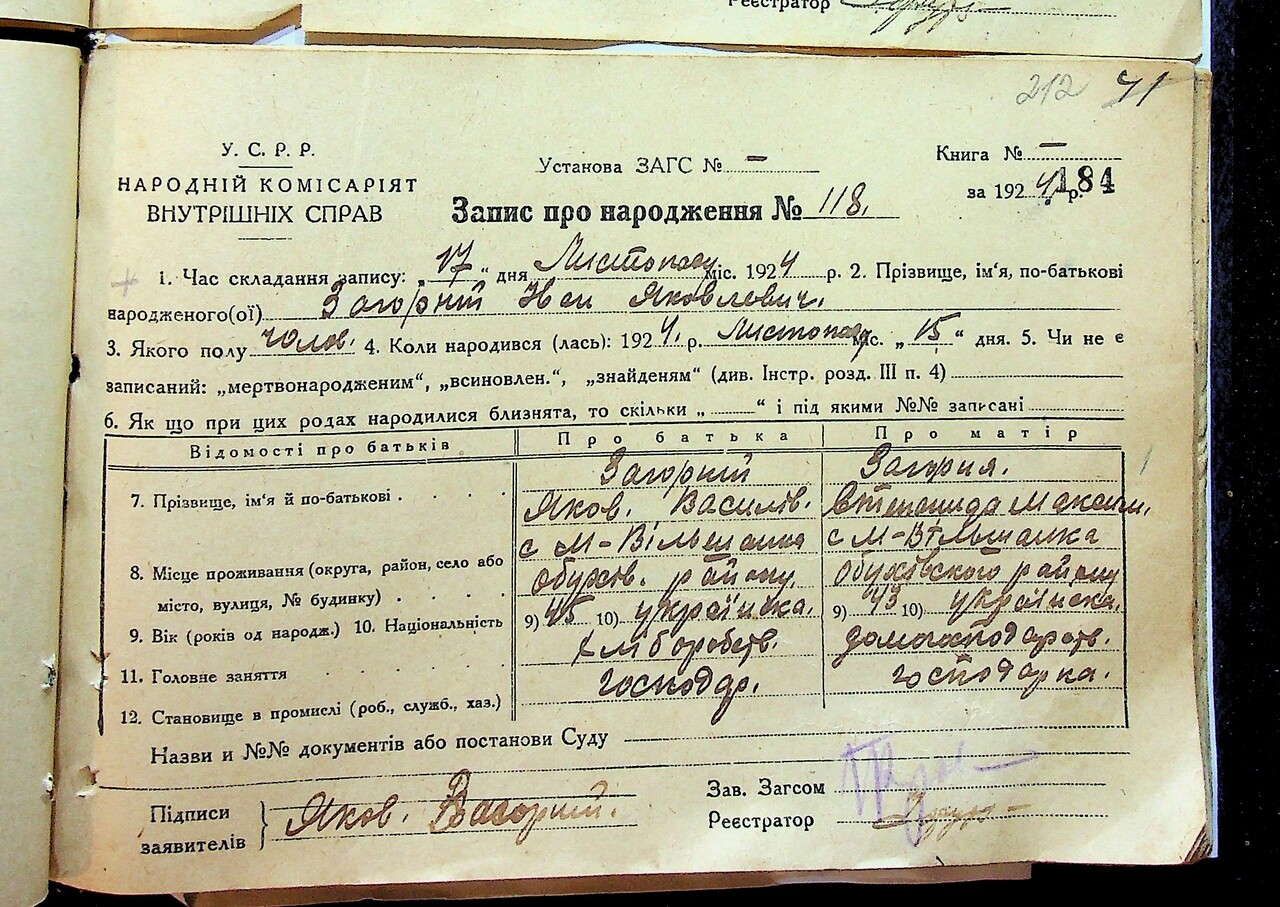 Реєстратор
212 71
У. С. Р. Р.
НАРОДНІЙ КОМІСАРІЯТ
ВНУТРІШНІХ СПРАВ
Установа ЗАГС № —
Книга № —
за 1924 р. 184
Запис про народження № 118.
1. Час складання запису: „17“ дня Листопаду міс. 1924 р. 2. Прізвище, ім'я, по-батькові
народженого(ої) Загорній Яковлевич.
3. Якого полу чолов. 4. Коли народився (лась): 1924 р. Листопаду міс. „15“ дня. 5. Чи не є
записаний: „мертвонародженим“, „всиновлен.“, „знайденям“ (див. Інстр. розд. III п. 4)
6. Як що при цих родах народилися близнята, то скільки „ “ і під якими №№ записані
Відомості про батьків Про батька Про матір
7. Прізвище, ім'я й по-батькові Загорній Загорня.
Яков. Василів. Максим.
8. Місце проживання (округа, район, село або с М-Вільшанка с М-Вільшанка
місто, вулиця, № будинку) Обухів. району Обухівского району
9. Вік (років од народж.) 10. Національність 9) 45 10) українска. 9) 43 10) українска.
11. Головне заняття хліборобств. домогосподарств.
12. Становище в промислі (роб., служб., хаз.) господар. господарка.
Назви и №№ документів або постанови Суду
Підписи
заявителів Яков. Загорний.
Зав. Загсом
Реєстратор